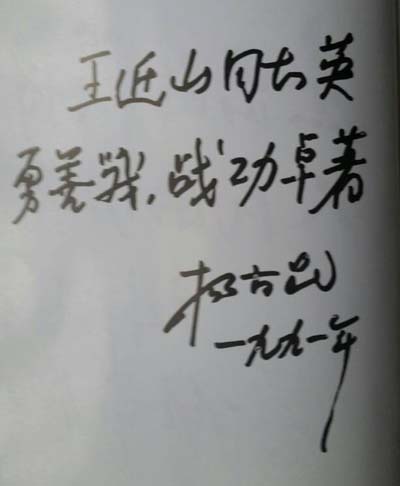 王近山同志英
勇善战,战功卓著
杨白冰
一九九一年